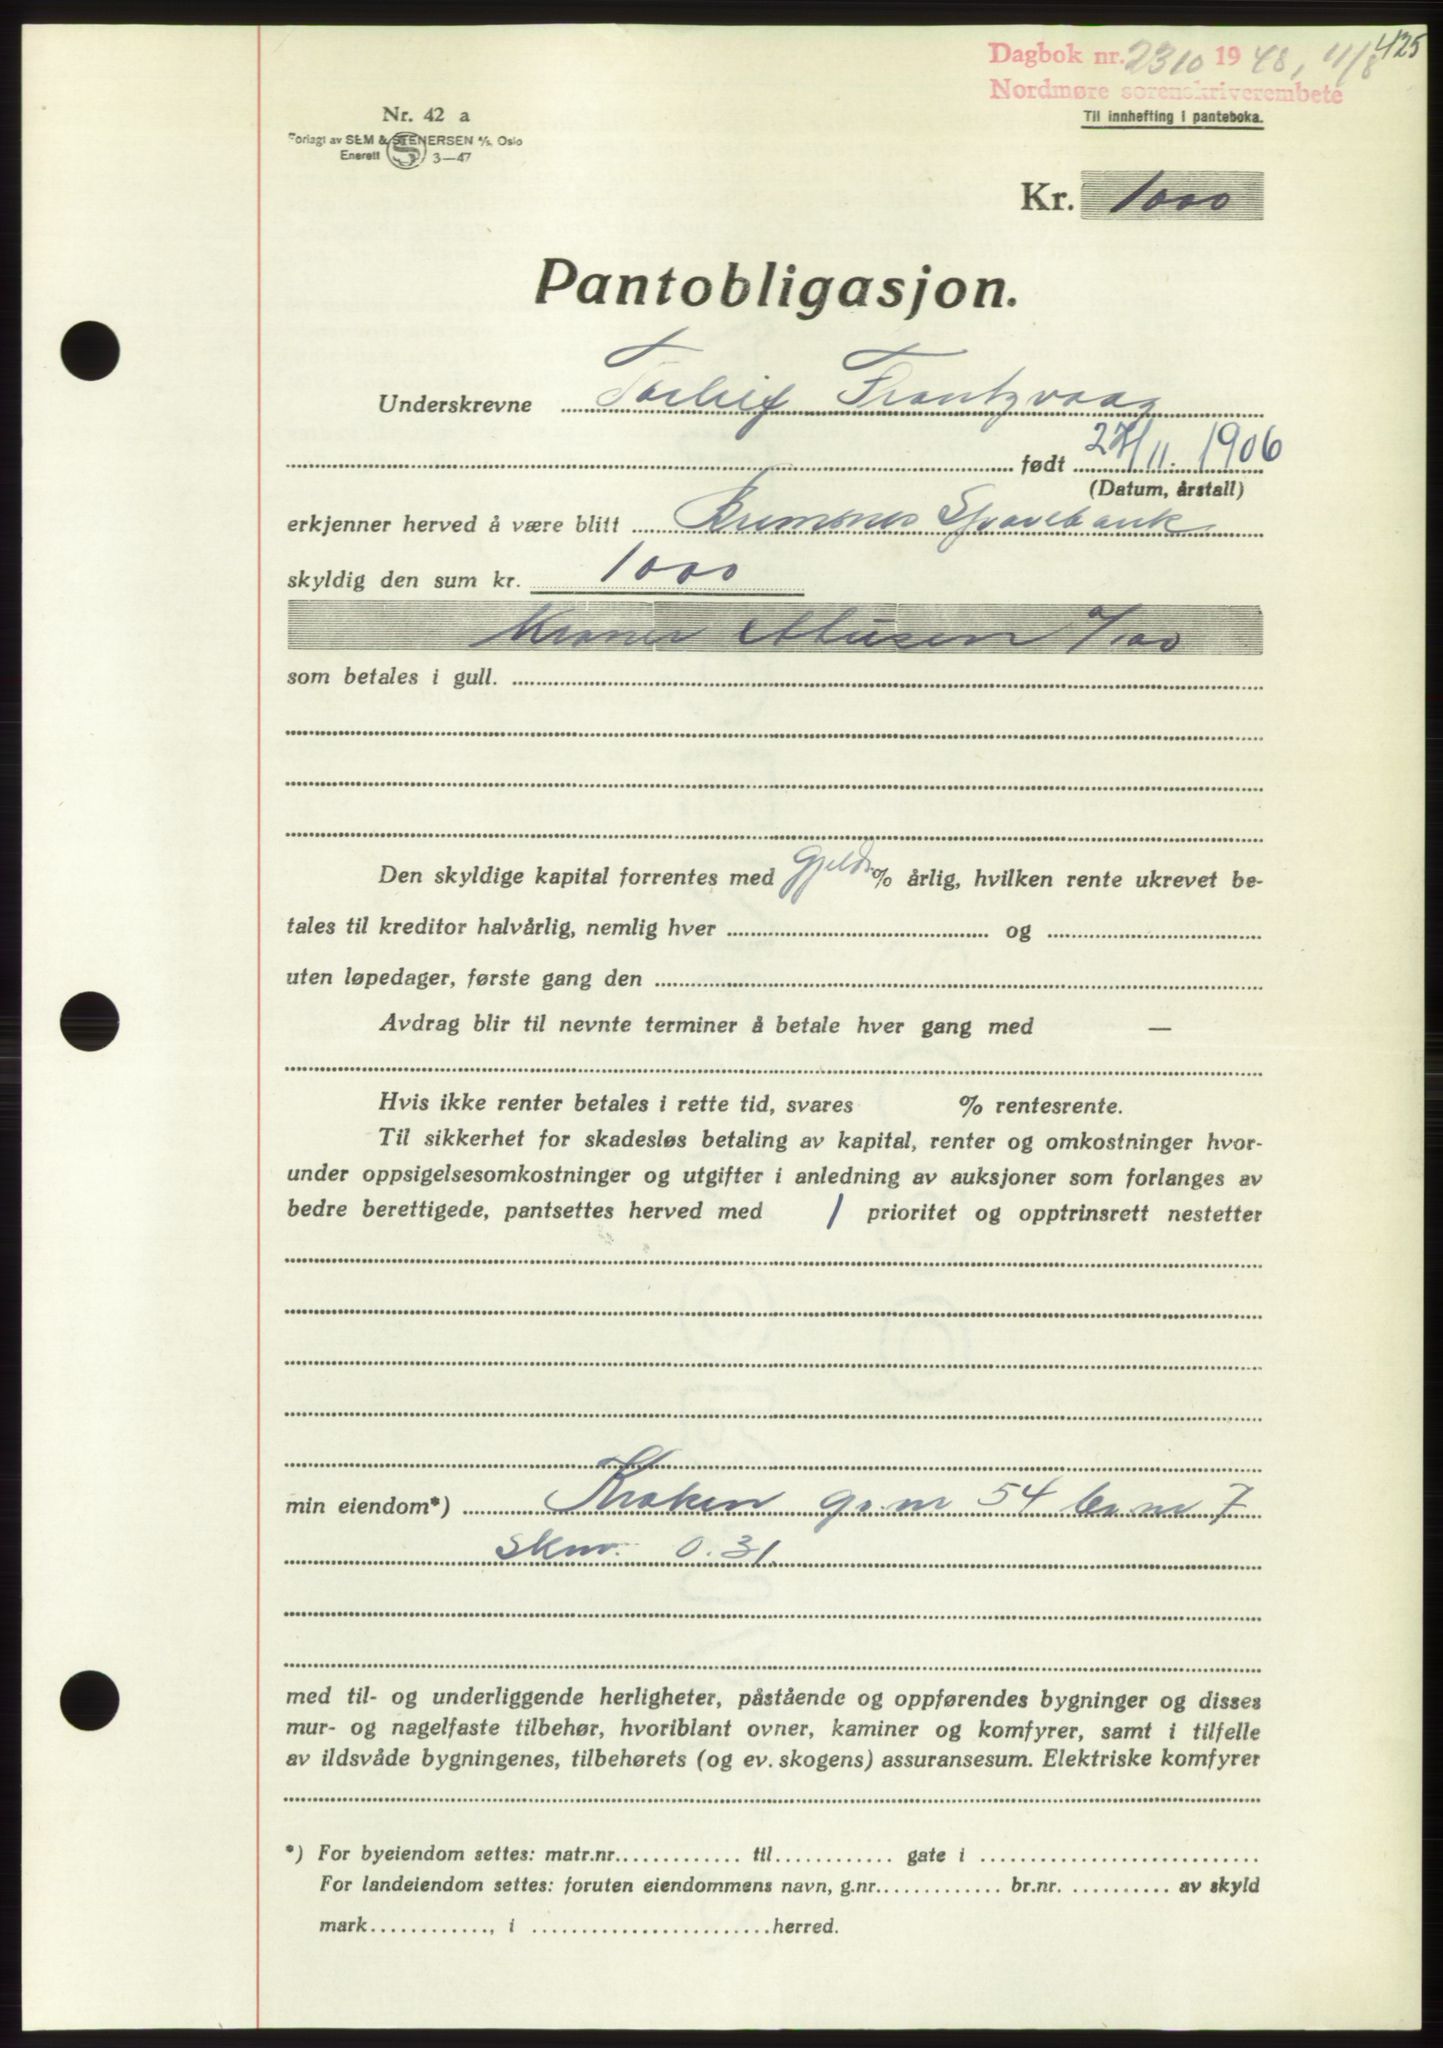 425
Dagbok nr. 2310 1948, 11/8
Nordmøre sorenskriverembete
Til innhefting i panteboka.
Nr. 42 a
Forlagt av SEM & STENERSEN A/S, Oslo
Enerett S 3—47
Kr. 1000
Pantobligasjon.
Underskrevne Torleif Frantzvaag
født 27/11. 1906
(Datum, årstall)
erkjenner herved å være blitt Bremsnes Sparebank
skyldig den sum kr. 1000
Kroner 0/100
som betales i gull.
Den skyldige kapital forrentes med Gjeld. % årlig, hvilken rente ukrevet be-
tales til kreditor halvårlig, nemlig hver og
uten løpedager, første gang den
Avdrag blir til nevnte terminer å betale hver gang med —
Hvis ikke renter betales i rette tid, svares % rentesrente.
Til sikkerhet for skadesløs betaling av kapital, renter og omkostninger hvor-
under oppsigelsesomkostninger og utgifter i anledning av auksjoner som forlanges av
bedre berettigede, pantsettes herved med 1 prioritet og opptrinsrett nestetter
min eiendom*) Kroken gr.nr 54 br.nr 7
skm. 0.31
med til- og underliggende herligheter, påstående og oppførendes bygninger og disses
mur- og nagelfaste tilbehør, hvoriblant ovner, kaminer og komfyrer, samt i tilfelle
av ildsvåde bygningenes, tilbehørets (og ev. skogens) assuransesum. Elektriske komfyrer
*) For byeiendom settes: matr.nr. til gate i
For landeiendom settes: foruten eiendommens navn, g.nr. br.nr. av skyld
mark , i herred.